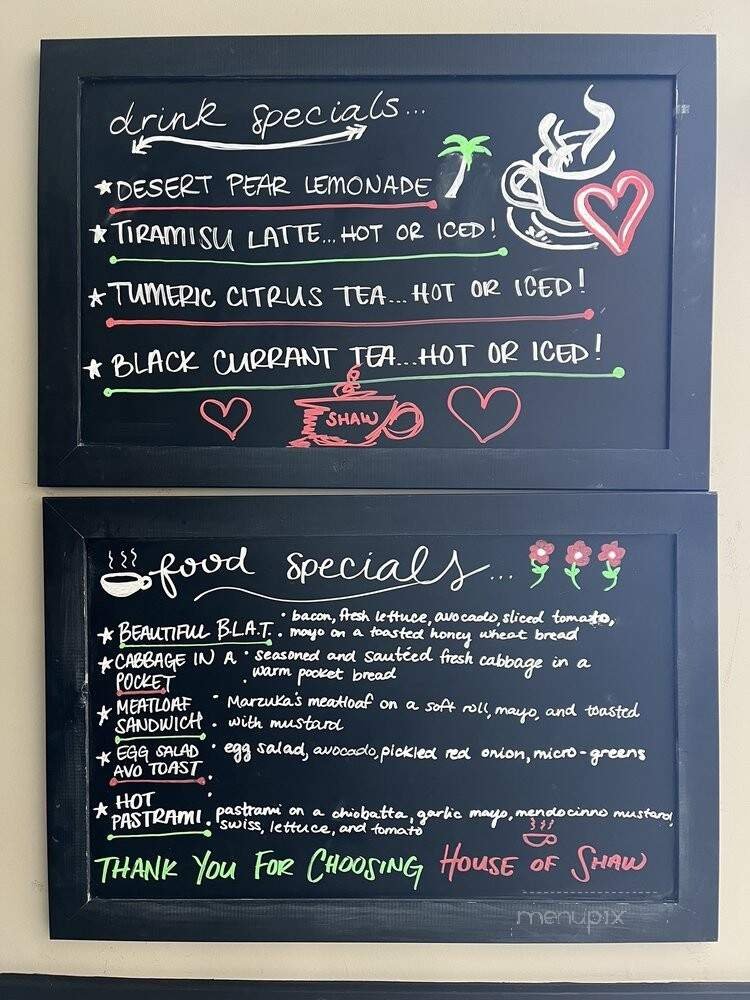 drink specials...
★ DESERT PEAR LEMONADE
★ TIRAMISU LATTE...HOT OR ICED!
★ TUMERIC CITRUS TEA...HOT OR ICED!
★ BLACK CURRANT TEA...HOT OR ICED!
SHAW
food specials...
★ BEAUTIFUL B.L.A.T. • bacon, fresh lettuce, avocado, sliced tomato,
• mayo on a toasted honey wheat bread
★ CABBAGE IN A • seasoned and sautéed fresh cabbage in a
POCKET • warm pocket bread
★ MEATLOAF • Marzuka's meatloaf on a soft roll, mayo, and toasted
SANDWICH • with mustard
★ EGG SALAD • egg salad, avocado, pickled red onion, micro-greens
AVO TOAST •
★ HOT
PASTRAMI • pastrami on a chiobatta, garlic mayo, mendocinno mustard,
swiss, lettuce, and tomato
THANK YOU FOR CHOOSING HOUSE OF SHAW
menupix